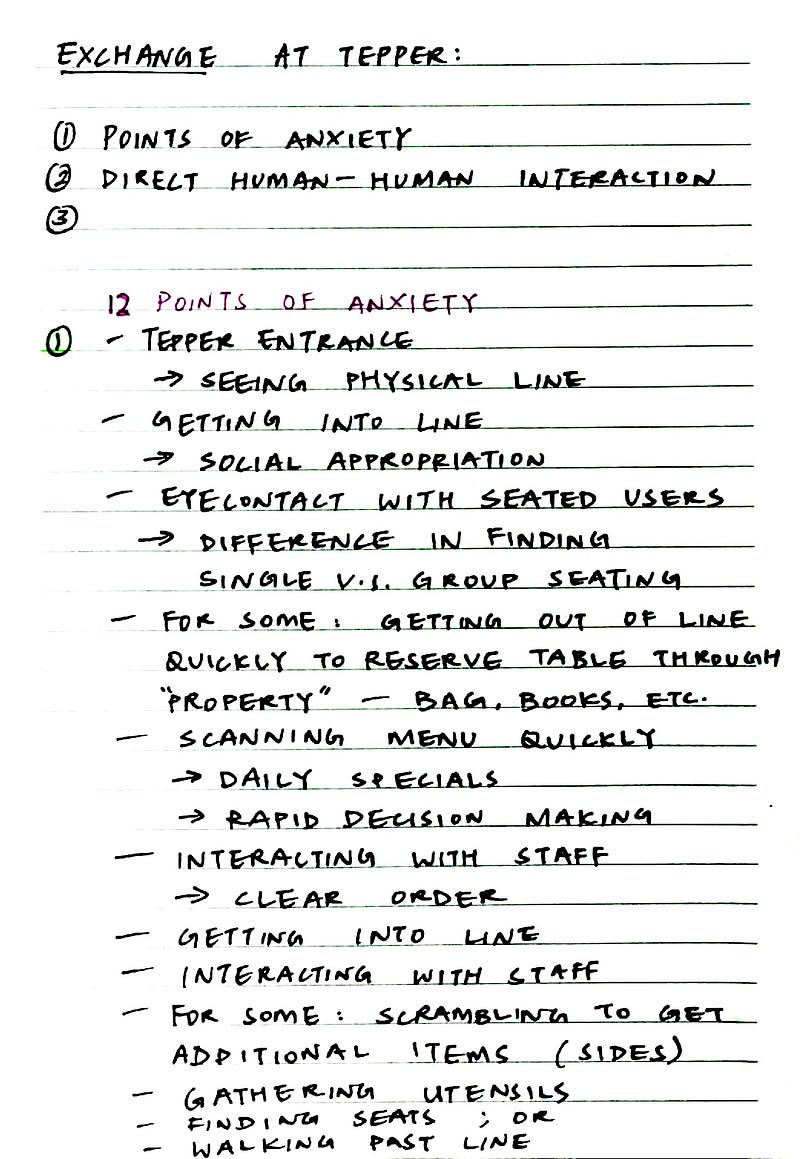 EXCHANGE AT TEPPER:
① POINTS OF ANXIETY
② DIRECT HUMAN-HUMAN INTERACTION
③
12 POINTS OF ANXIETY
① - TEPPER ENTRANCE
→ SEEING PHYSICAL LINE
- GETTING INTO LINE
→ SOCIAL APPROPRIATION
- EYECONTACT WITH SEATED USERS
→ DIFFERENCE IN FINDING
SINGLE V.S. GROUP SEATING
- FOR SOME: GETTING OUT OF LINE
QUICKLY TO RESERVE TABLE THROUGH
"PROPERTY" - BAG, BOOKS, ETC.
- SCANNING MENU QUICKLY
→ DAILY SPECIALS
→ RAPID DECISION MAKING
- INTERACTING WITH STAFF
→ CLEAR ORDER
- GETTING INTO LINE
- INTERACTING WITH STAFF
- FOR SOME: SCRAMBLING TO GET
ADDITIONAL ITEMS (SIDES)
- GATHERING UTENSILS
- FINDING SEATS ; OR
- WALKING PAST LINE